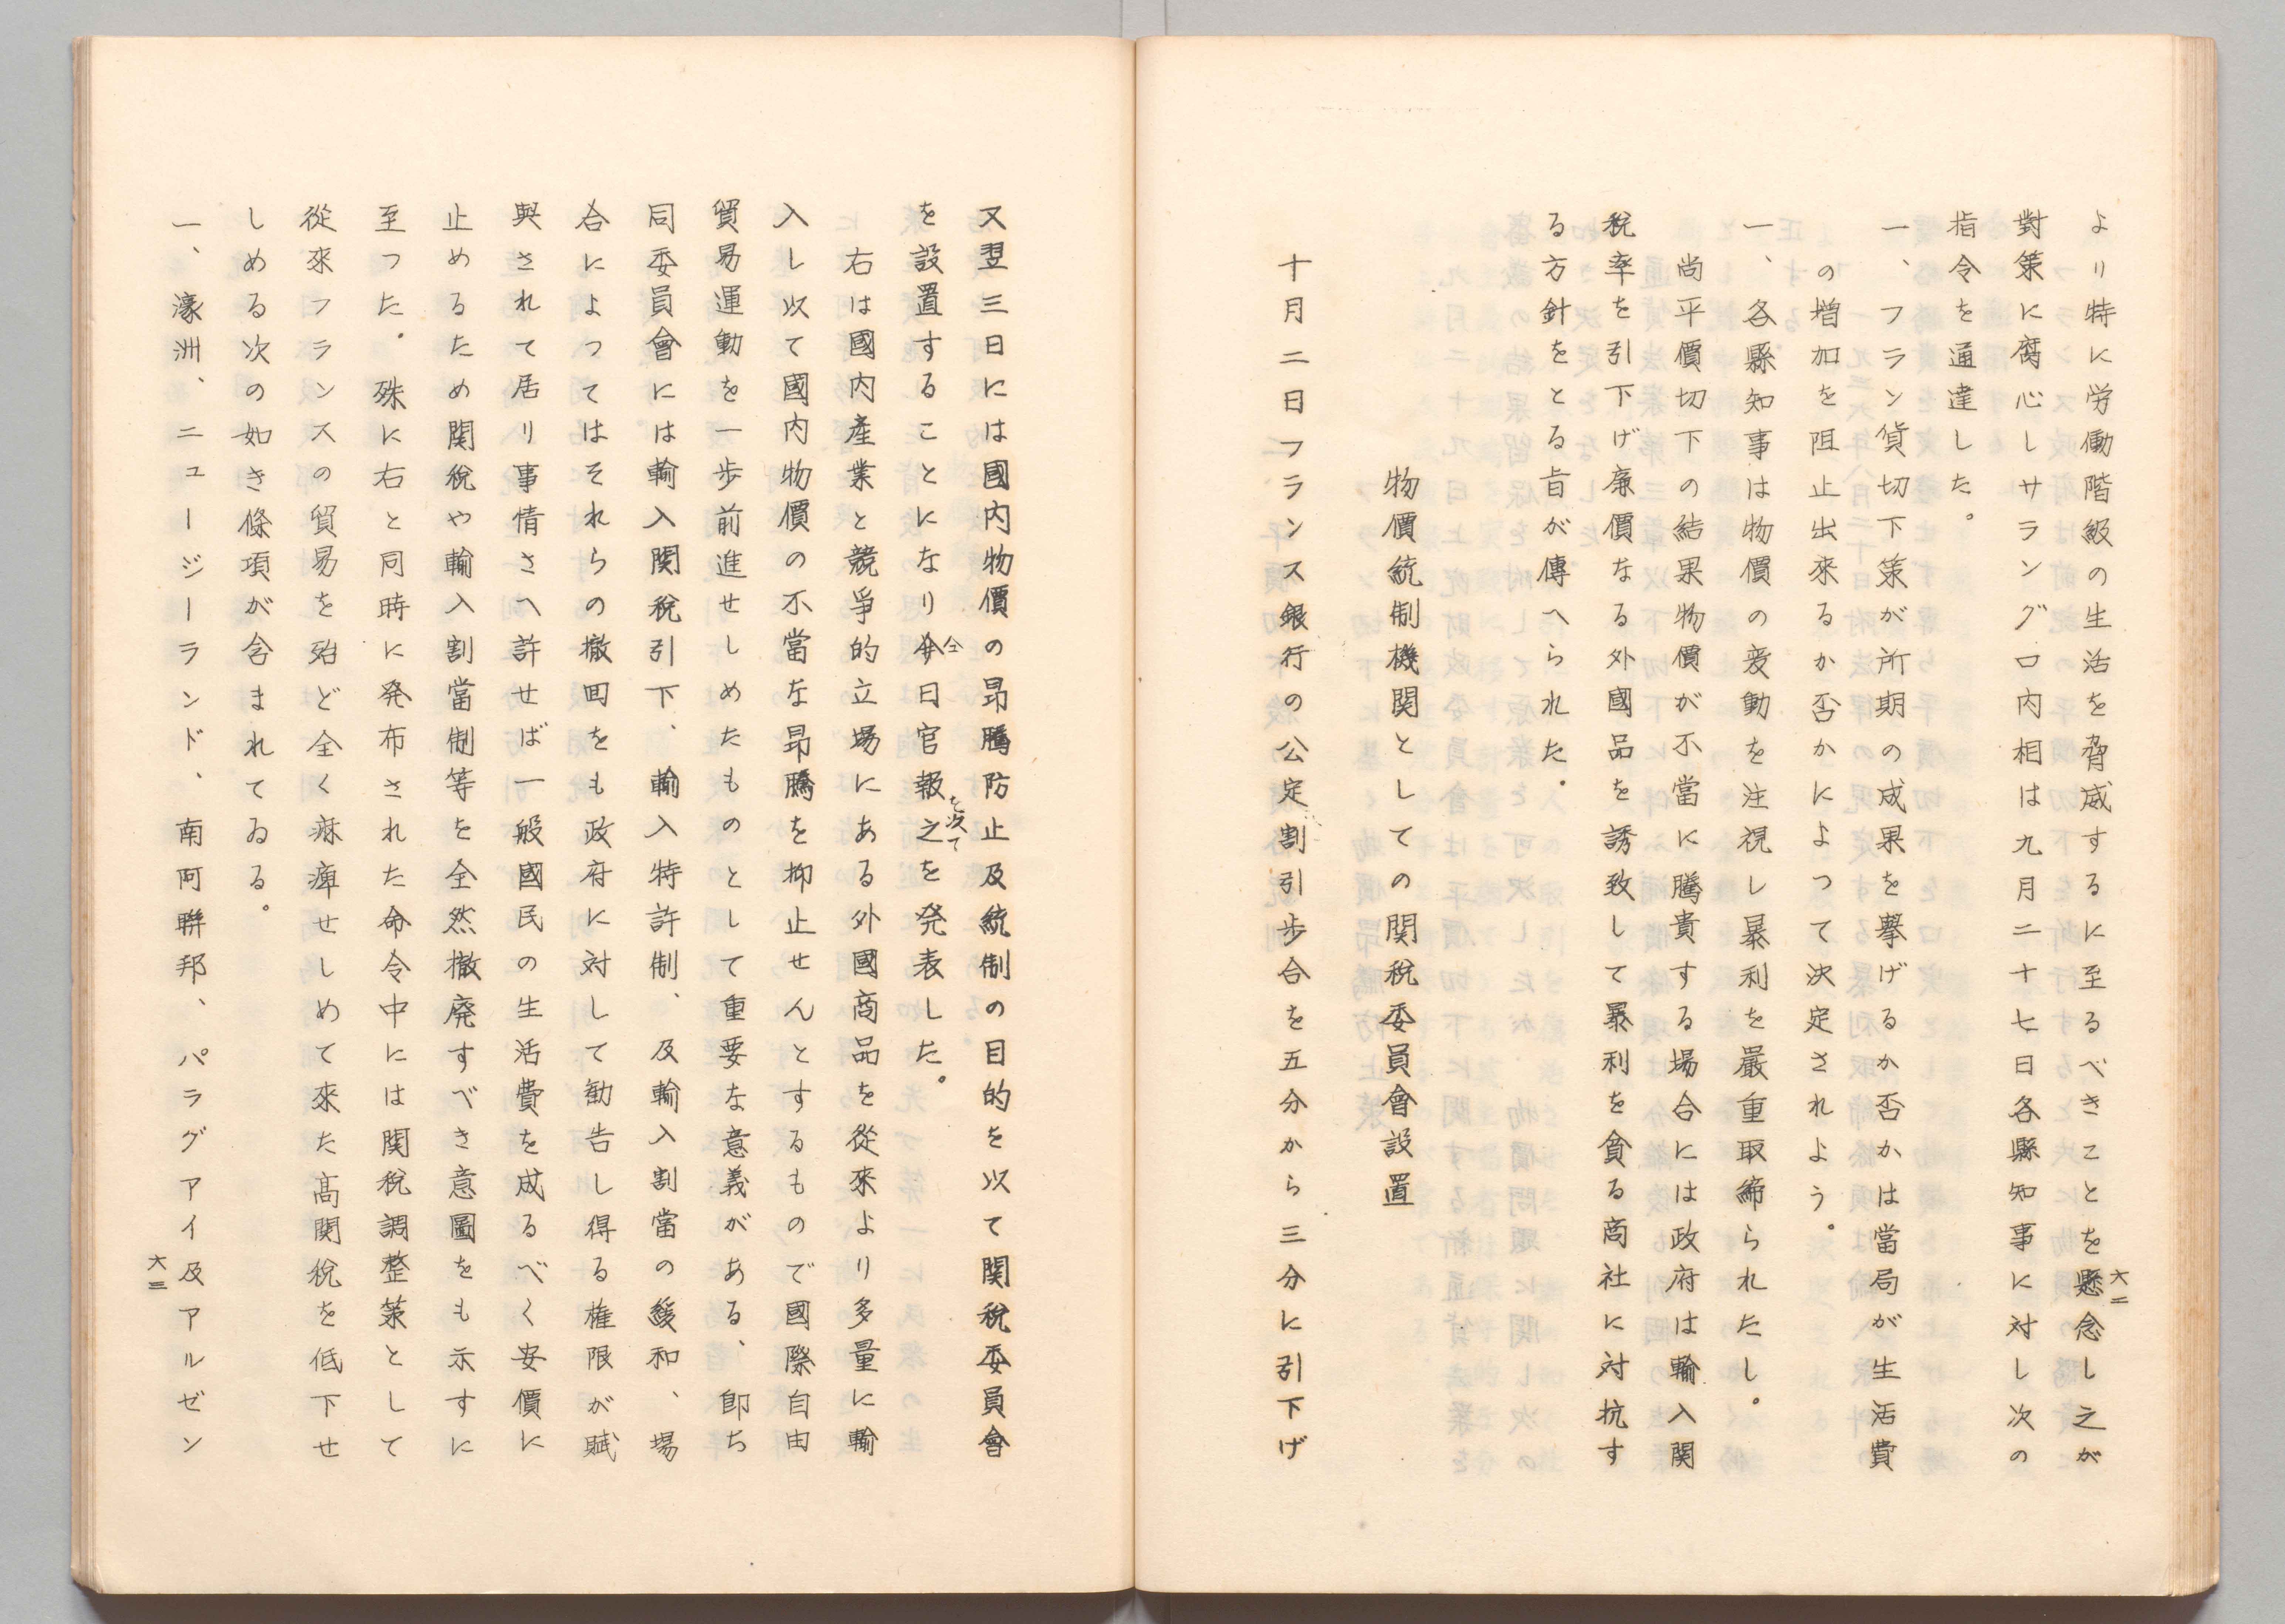 より特に労働階級の生活を脅威するに至るべきことを懸念し之が
對策に腐心しサラングロ内相は九月二十七日各縣知事に対し次の
指令を通達した。
一、フラン貨切下策が所期の成果を擧げるか否かは當局が生活費
の増加を阻止出來るか否かによつて決定されよう。
一、各縣知事は物價の変動を注視し暴利を嚴重取締られたし。
尚平價切下の結果物價が不當に騰貴する場合には政府は輸入関
税率を引下げ廉價なる外國品を誘致して暴利を貪る商社に対抗す
る方針をとる旨が傳へられた。
物價統制機関としての関税委員會設置
十月二日フランス銀行の公定割引歩合を五分から三分に引下げ
六二
又翌三日には國内物價の昻騰防止及統制の目的を以て関税委員會
を設置することになり仝日官報を以て之を発表した。
右は國内産業と競爭的立場にある外國商品を從來より多量に輸
入し以て國内物價の不當な昻騰を抑止せんとするもので國際自由
貿易運動を一歩前進せしめたものとして重要な意義がある、卽ち
同委員會には輸入関税引下、輸入特許制、及輸入割當の緩和、場
合によつてはそれらの撤回をも政府に対して勧告し得る権限が賦
與されて居り事情さへ許せば一般國民の生活費を成るべく安價に
止めるため関税や輸入割當制等を全然撤廃すべき意圖をも示すに
至つた。殊に右と同時に発布された命令中には関税調整策として
從來フランスの貿易を殆ど全く痳痺せしめて來た髙関税を低下せ
しめる次の如き條項が含まれてゐる。
一、濠洲、ニュージーランド、南阿聯邦、パラグアイ及アルゼン
六三